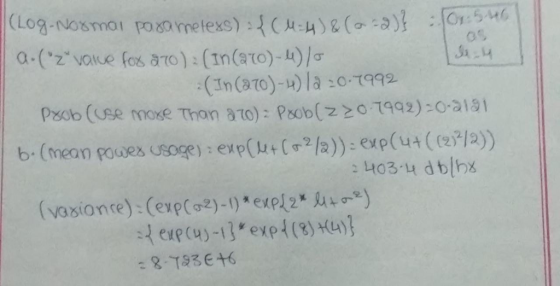 (Log-Normal parameters) : { (μ=4) & (σ=2)} :
σx=5.46
as
μ=4
a. ("z" value for 270) : (In(270)-4)/σ
: (In(270)-4)/2 = 0.7992
Prob (use more than 270) = Prob(z ≥ 0.7992) = 0.2121
b. (mean power usage) = exp(μ+(σ²/2)) = exp(4+((2)²/2))
= 403.4 db/hr
(variance) = (exp(σ²)-1)*exp{2*μ+σ²}
= {exp(4)-1}*exp{(8)+(4)}
= 8.723E+6